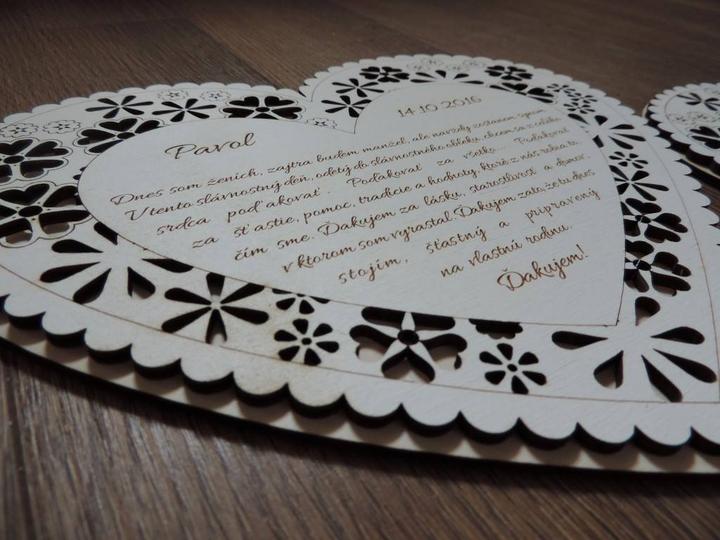 14.10.2016
Pavol
Dnes som ženich, zajtra budem manžel, ale navždy zostanem synom.
V tento slávnostný deň, odetý do slávnostného obleku, chcem sa z celého
srdca poďakovať. Poďakovať za všetko. Poďakovať
za šťastie, pomoc, tradície a hodnoty, ktoré z nás robia to
čím sme. Ďakujem za lásku, starostlivosť a domov
v ktorom som vyrastal. Ďakujem zato že tu dnes
stojím, šťastný a pripravený
na vlastnú rodinu.
Ďakujem!